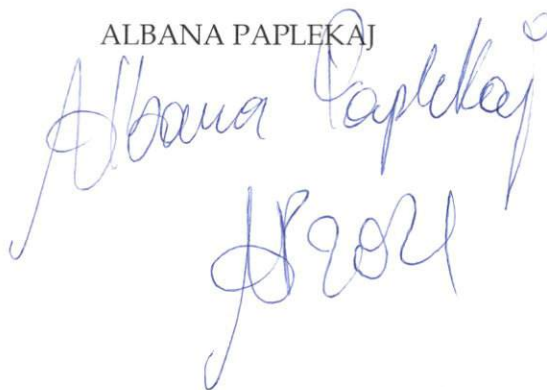 ALBANA PAPLEKAJ
Albana Paplekaj
AP 2021